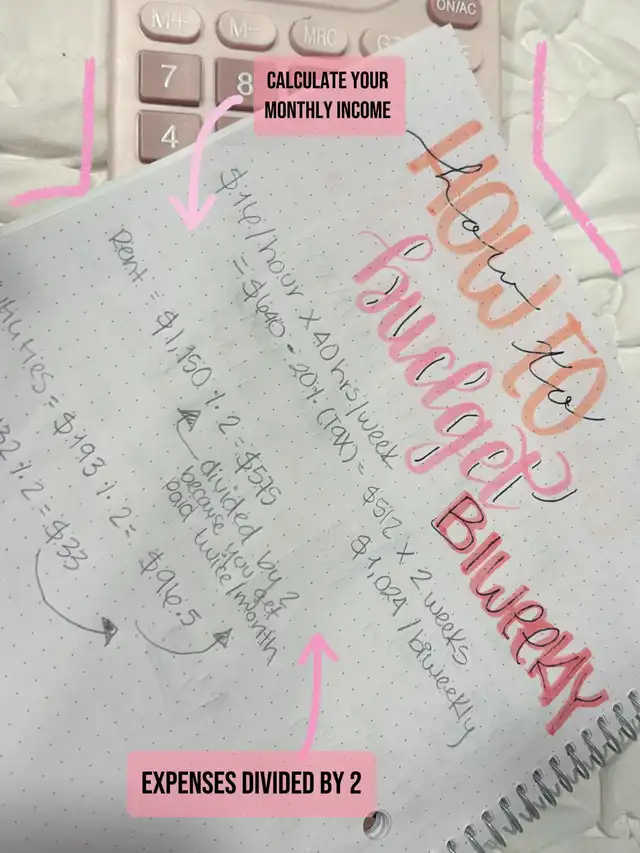 M+
M-
MRC
ON/AC
7
8
4
CALCULATE YOUR
MONTHLY INCOME
HOW TO
how to
budget
BIWEEKLY
$16/hour X 40hrs/week
= $640 - 20% (Tax) = $512 X 2 weeks
$1,024 / biweekly
Rent = $1,150 % 2 = $575
divided by 2
because you get
paid twice/month
= $193 % 2 =
$96.5
% 2 = $33
EXPENSES DIVIDED BY 2